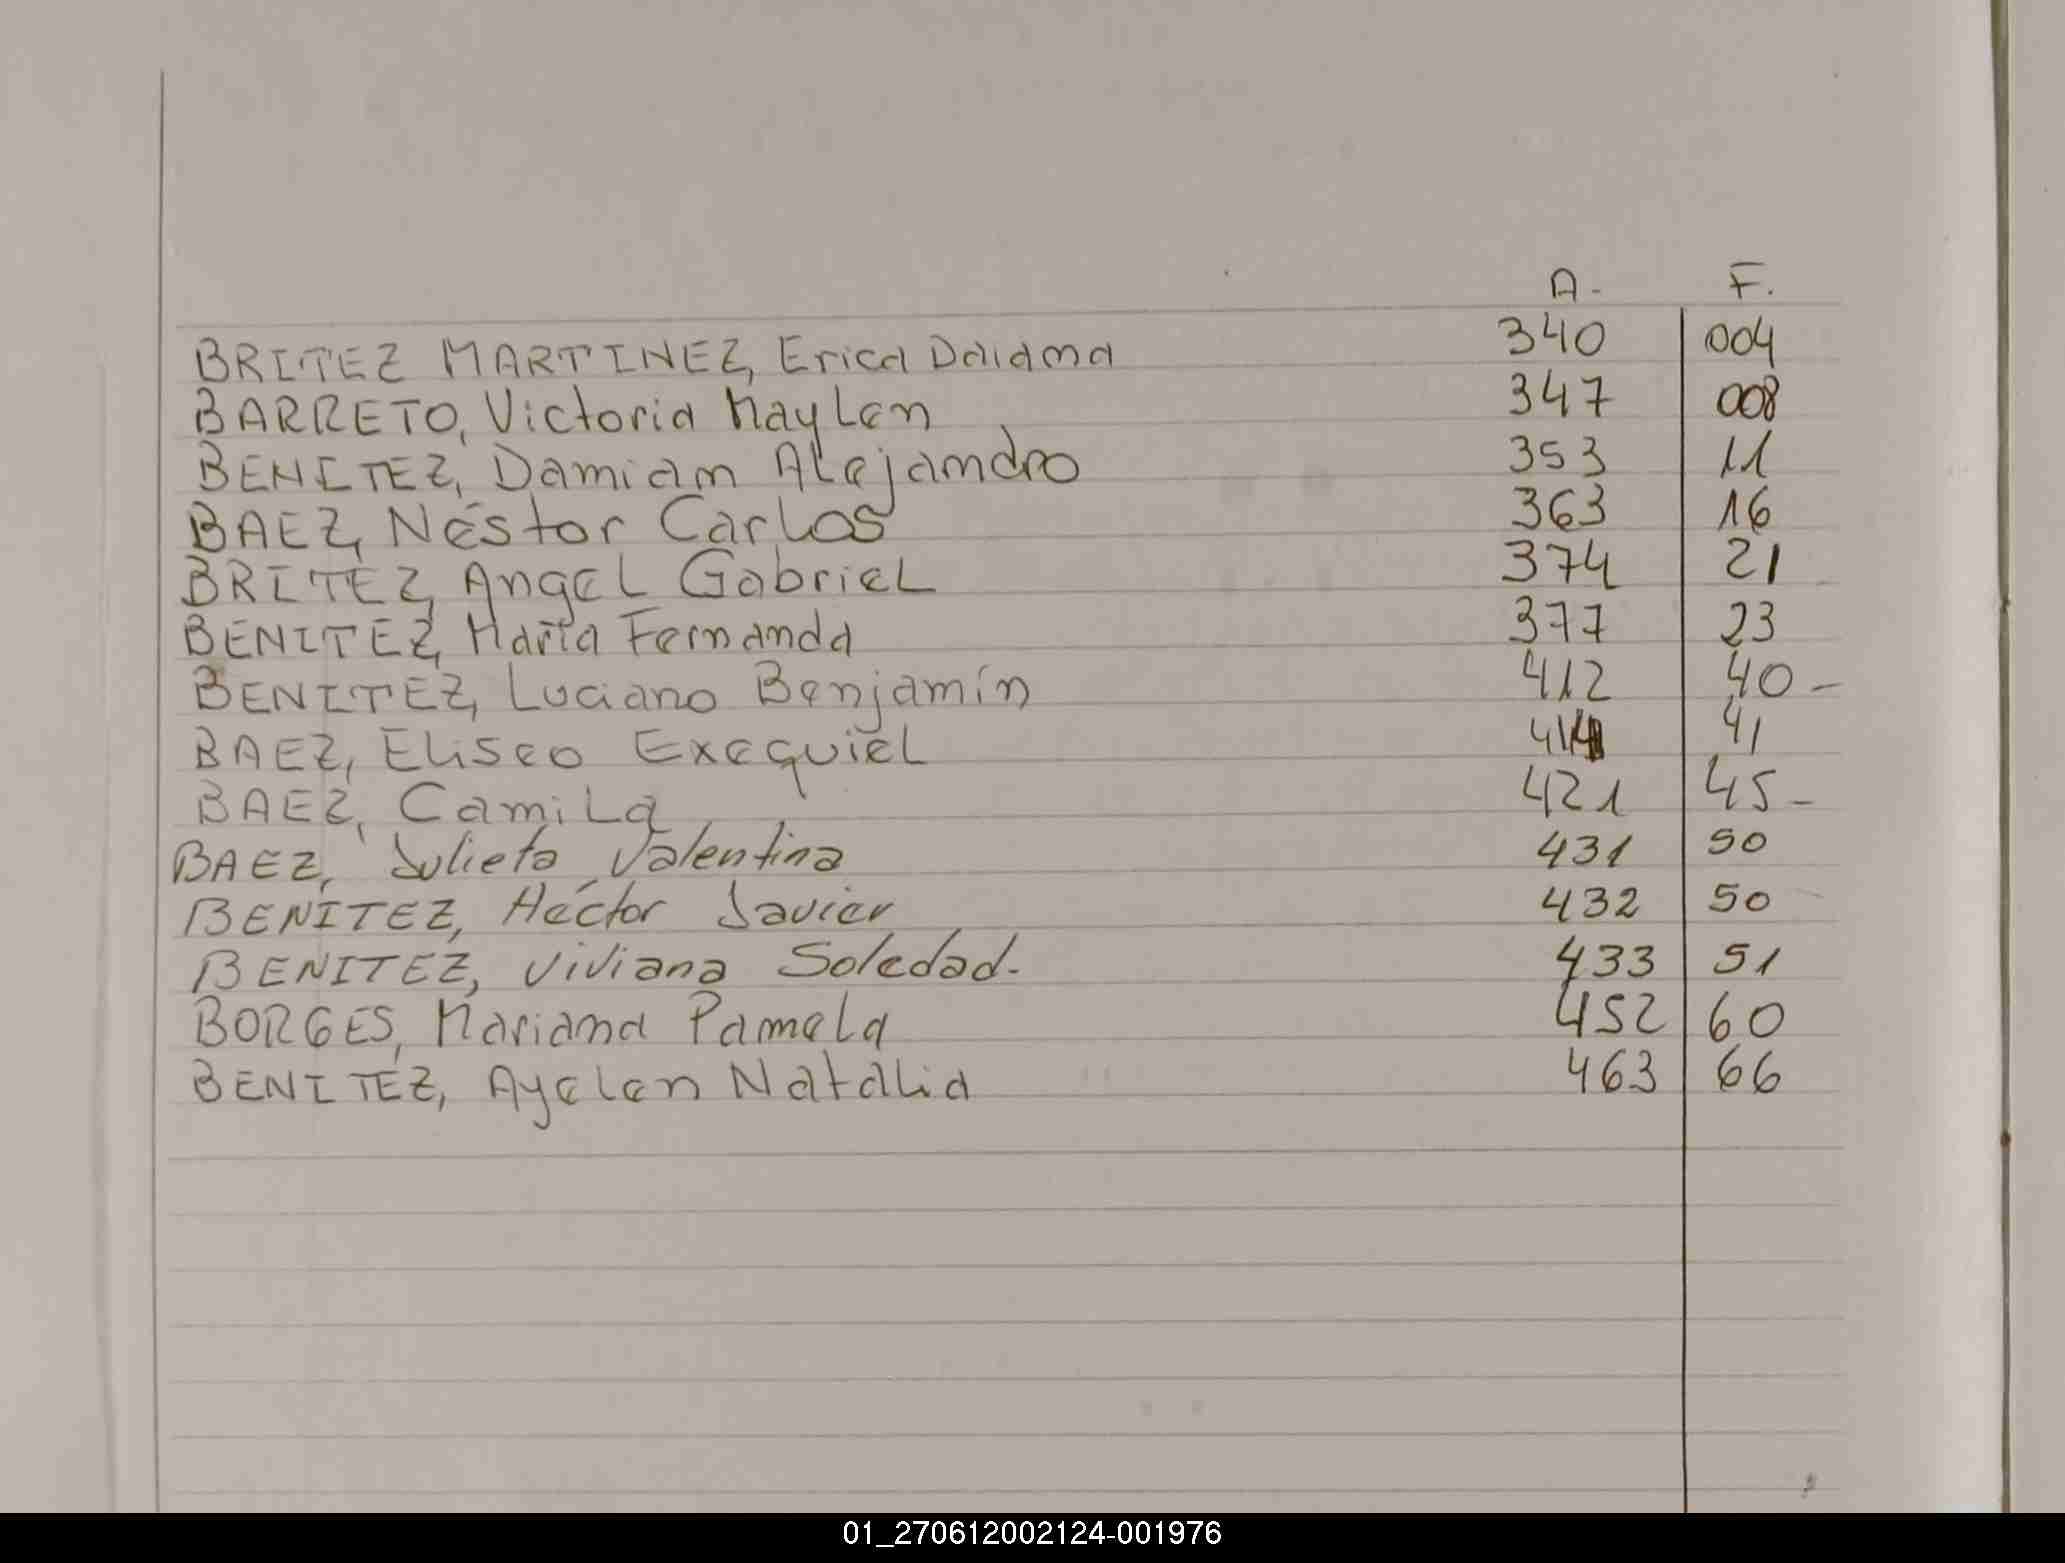 A. F.
BRITEZ MARTINEZ, Erica Daiana 340 004
BARRETO, Victoria Maylen 347 008
BENITEZ, Damian Alejandro 353 11
BAEZ, Néstor Carlos 363 16
BRITEZ, Angel Gabriel 374 21
BENITEZ, María Fernanda 377 23
BENITEZ, Luciano Benjamín 412 40-
BAEZ, Eliseo Exequiel 41
BAEZ, Camila 421 45-
BAEZ, Julieta Valentina 431 50
BENÍTEZ, Héctor Javier 432 50
BENITEZ, Viviana Soledad. 433 51
BORGES, Mariana Pamela 452 60
BENITEZ, Ayelen Natalia 463 66
01_270612002124-001976